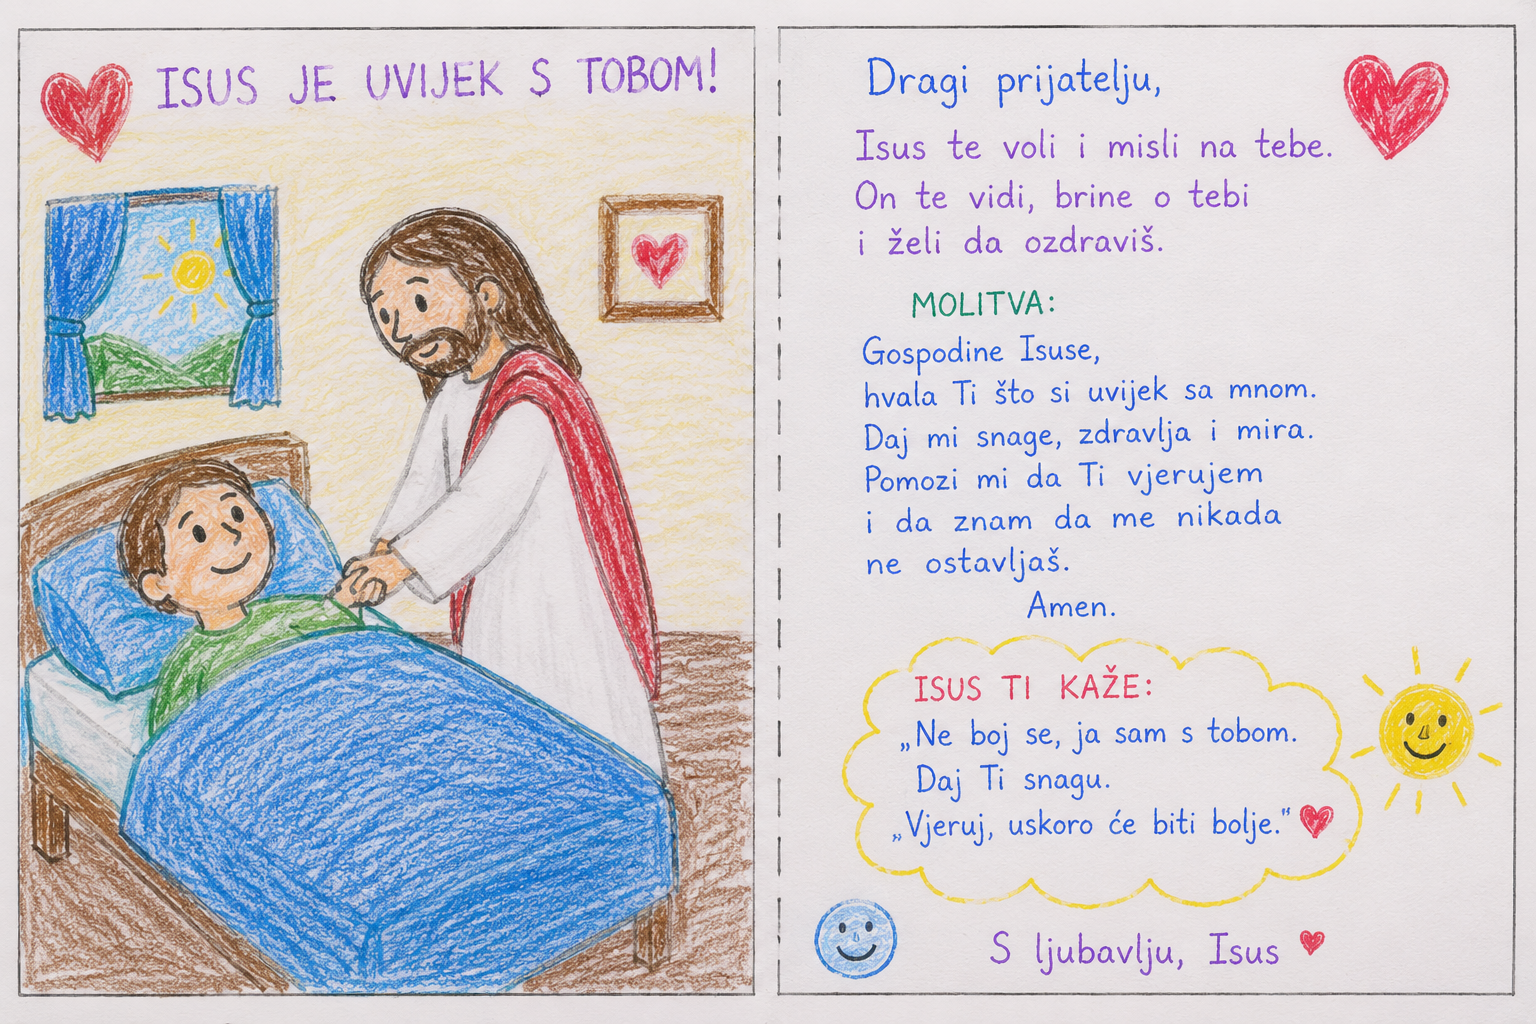 ISUS JE UVIJEK S TOBOM!
Dragi prijatelju,
Isus te voli i misli na tebe.
On te vidi, brine o tebi
i želi da ozdraviš.
MOLITVA:
Gospodine Isuse,
hvala Ti što si uvijek sa mnom.
Daj mi snage, zdravlja i mira.
Pomozi mi da Ti vjerujem
i da znam da me nikada
ne ostavljaš.
Amen.
ISUS TI KAŽE:
„Ne boj se, ja sam s tobom.
Daj Ti snagu.
„Vjeruj, uskoro će biti bolje.“
S ljubavlju, Isus